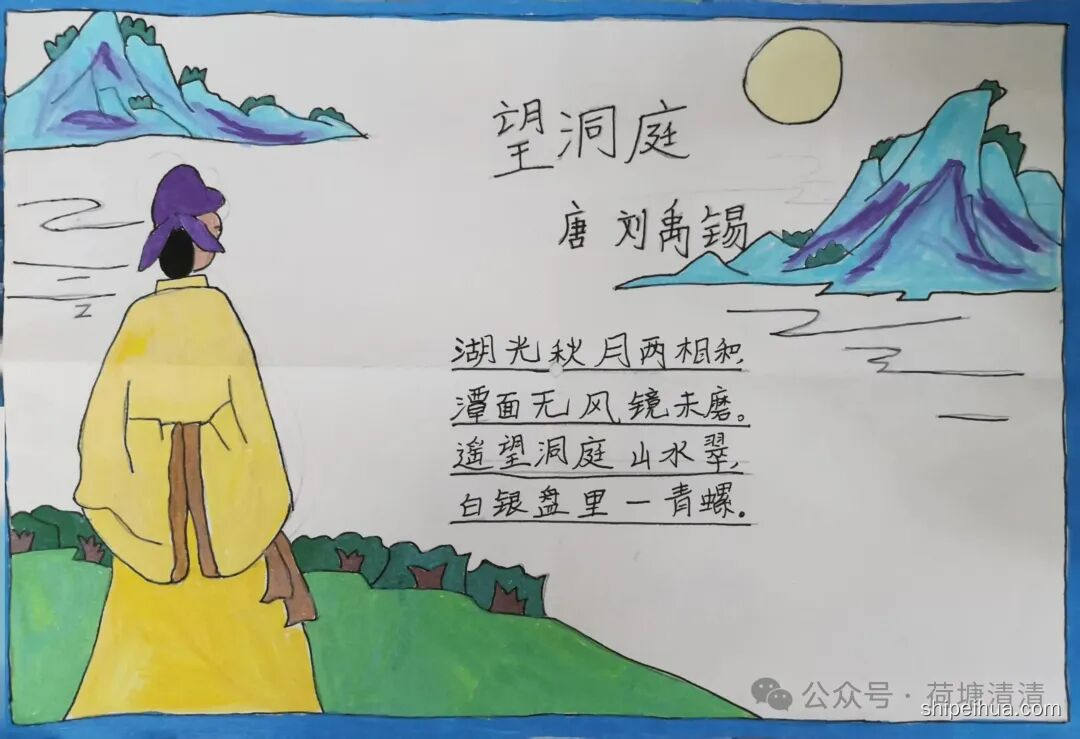 望洞庭
唐 刘禹锡
湖光秋月两相和,
潭面无风镜未磨。
遥望洞庭山水翠,
白银盘里一青螺。
公众号·荷塘清清
shipeihua.com